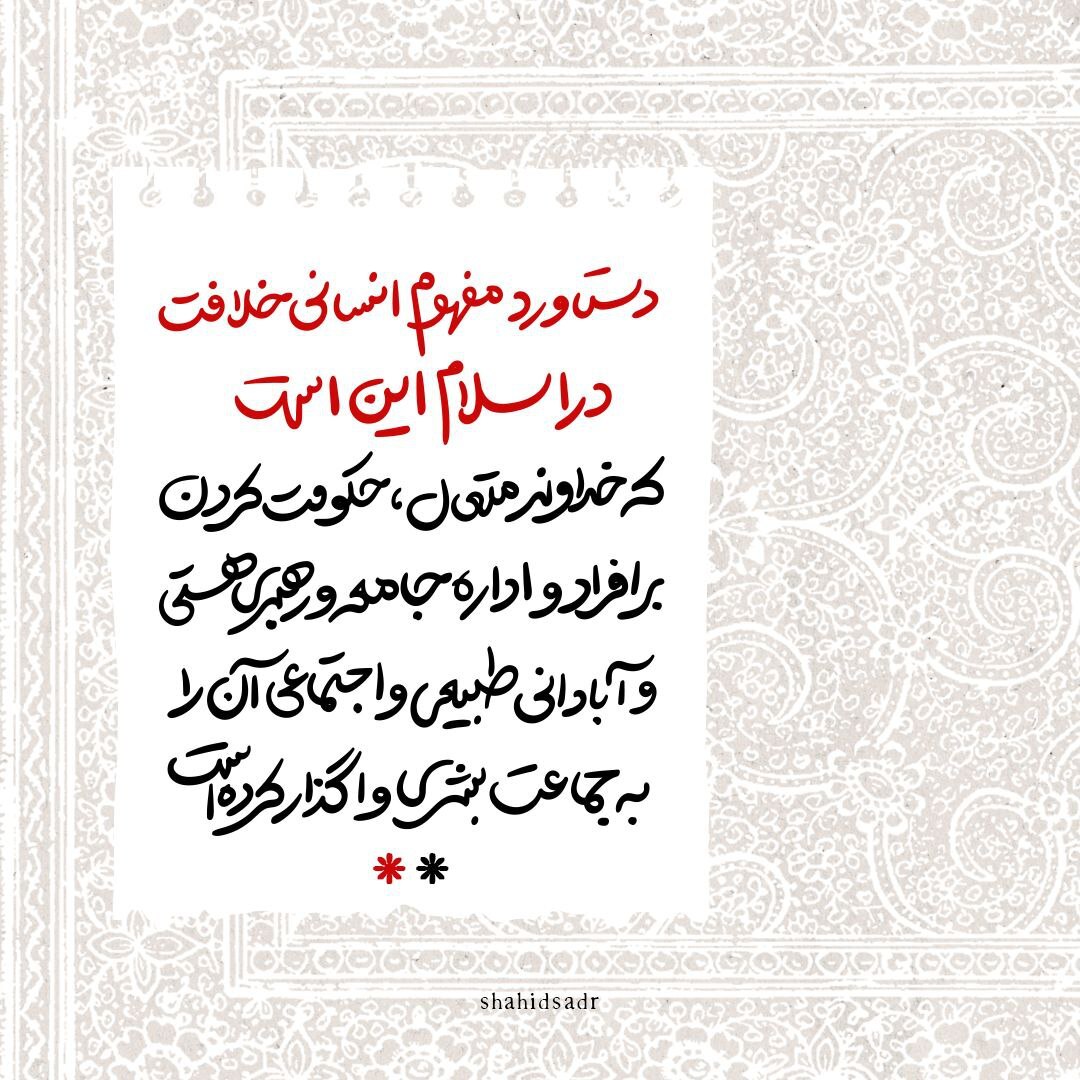 دستاورد مفهوم انسانی خلافت
در اسلام این است
که خداوند متعال، حکومت کردن
بر افراد و اداره جامعه و رهبری هستی
و آبادانی طبیعی و اجتماعی آن را
به جماعت بشری واگذار کرده است
shahidsadr